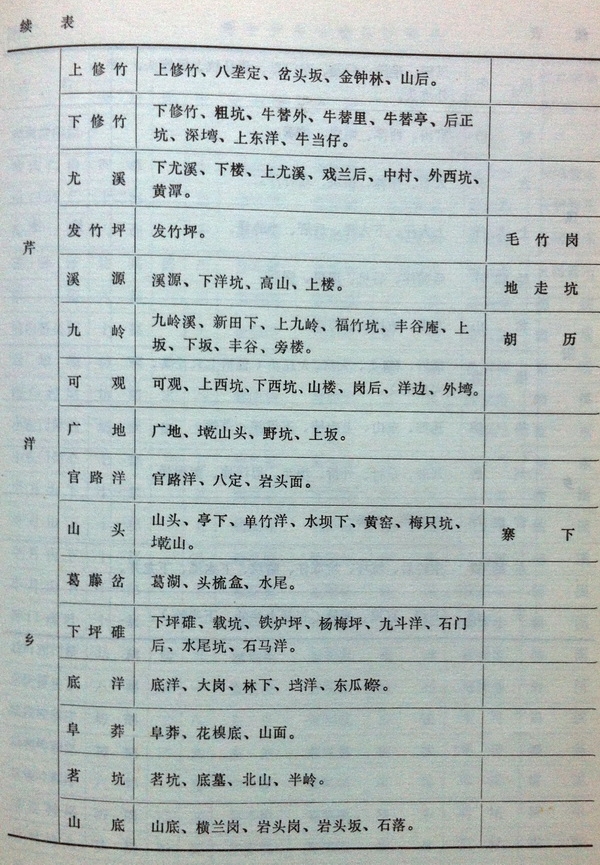 续 表
芹 洋 乡
上修竹 上修竹、八垄定、岔头坂、金钟林、山后。
下修竹 下修竹、粗坑、牛替外、牛替里、牛替亭、后正
坑、深塆、上东洋、牛当仔。
尤 溪 下尤溪、下楼、上尤溪、戏兰后、中村、外西坑、
黄潭。
发竹坪 发竹坪。 毛竹岗
溪 源 溪源、下洋坑、高山、上楼。 地走坑
九 岭 九岭溪、新田下、上九岭、福竹坑、丰谷庵、上
坂、下坂、丰谷、旁楼。 胡 历
可 观 可观、上西坑、下西坑、山楼、岗后、洋边、外塆。
广 地 广地、墘山头、野坑、上坂。
官路洋 官路洋、八定、岩头面。
山 头 山头、亭下、单竹洋、水坝下、黄窑、梅只坑、
墘山。 寨 下
葛藤岔 葛湖、头梳盒、水尾。
下坪碓 下坪碓、载坑、铁炉坪、杨梅坪、九斗洋、石门
后、水尾坑、石马洋。
底 洋 底洋、大岗、林下、垱洋、东瓜磜。
阜 莽 阜莽、花楻底、山面。
茗 坑 茗坑、底墓、北山、半岭。
山 底 山底、横兰岗、岩头岗、岩头坂、石落。